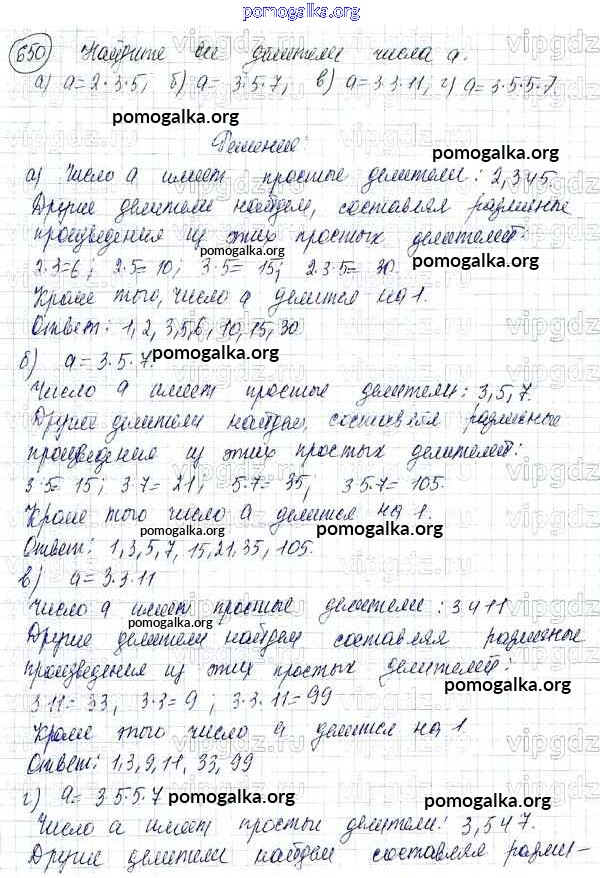 pomogalka.org
650 Найдите все делители числа a.
а) a=2·3·5, б) a= 3·5·7; в) a=3·3·11, г) a=3·5·5·7
pomogalka.org
Решение:
pomogalka.org
а) Число a имеет простые делители: 2,3и5.
Другие делители найдем, составляя различные
произведения из этих простых делителей:
pomogalka.org
2·3=6; 2·5=10; 3·5=15; 2·3·5=30.
pomogalka.org
Кроме того, число a делится на 1.
Ответ: 1,2,3,5,6,10,15,30
pomogalka.org
б) a=3·5·7. pomogalka.org
Число a имеет простые делители: 3,5,7.
Другие делители найдем, составляя различные
pomogalka.org
произведения из этих простых делителей:
3·5=15; 3·7=21; 5·7=35; 3·5·7=105.
Кроме того число a делится на 1.
pomogalka.org pomogalka.org
Ответ: 1,3,5,7, 15,21,35, 105.
в) a=3·3·11 pomogalka.org
Число a имеет простые делители: 3 и 11
Другие делители найдем составляя различные
произведения из этих простых делителей:
pomogalka.org
3·11=33, 3·3=9; 3·3·11=99
Кроме того число a делится на 1.
pomogalka.org
Ответ: 1,3,9,11, 33,99
г) a=3·5·5·7 pomogalka.org pomogalka.org
Число a имеет простые делители: 3,5и7.
Другие делители найдем составляя разли-
vipgdz.ru